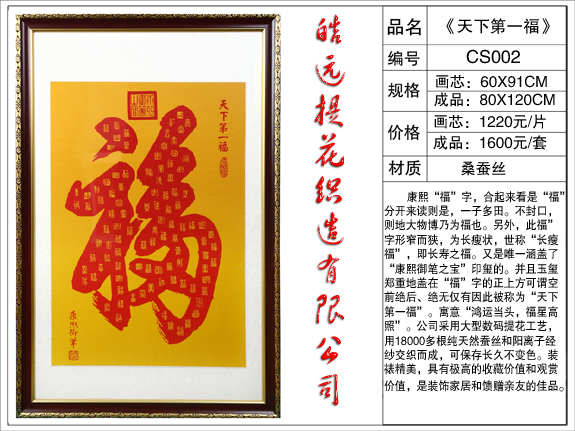 天下第一福
康熙御筆
皓远提花织造有限公司
品名 《天下第一福》
编号 CS002
规格 画芯：60X91CM
成品：80X120CM
价格 画芯：1220元/片
成品：1600元/套
材质 桑蚕丝
康熙“福”字，合起来看是“福”
分开来读则是，一子多田。不封口，
则地大物博乃为福也。另外，此福”
字形窄而狭，为长瘦状，世称“长瘦
福”，即长寿之福。又是唯一涵盖了
“康熙御笔之宝”印玺的。并且玉玺
郑重地盖在“福”字的正上方可谓空
前绝后、绝无仅有因此被称为“天下
第一福”。寓意“鸿运当头，福星高
照”。公司采用大型数码提花工艺，
用18000多根纯天然蚕丝和阳离子经
纱交织而成，可保存长久不变色。装
裱精美，具有极高的收藏价值和观赏
价值，是装饰家居和馈赠亲友的佳品。